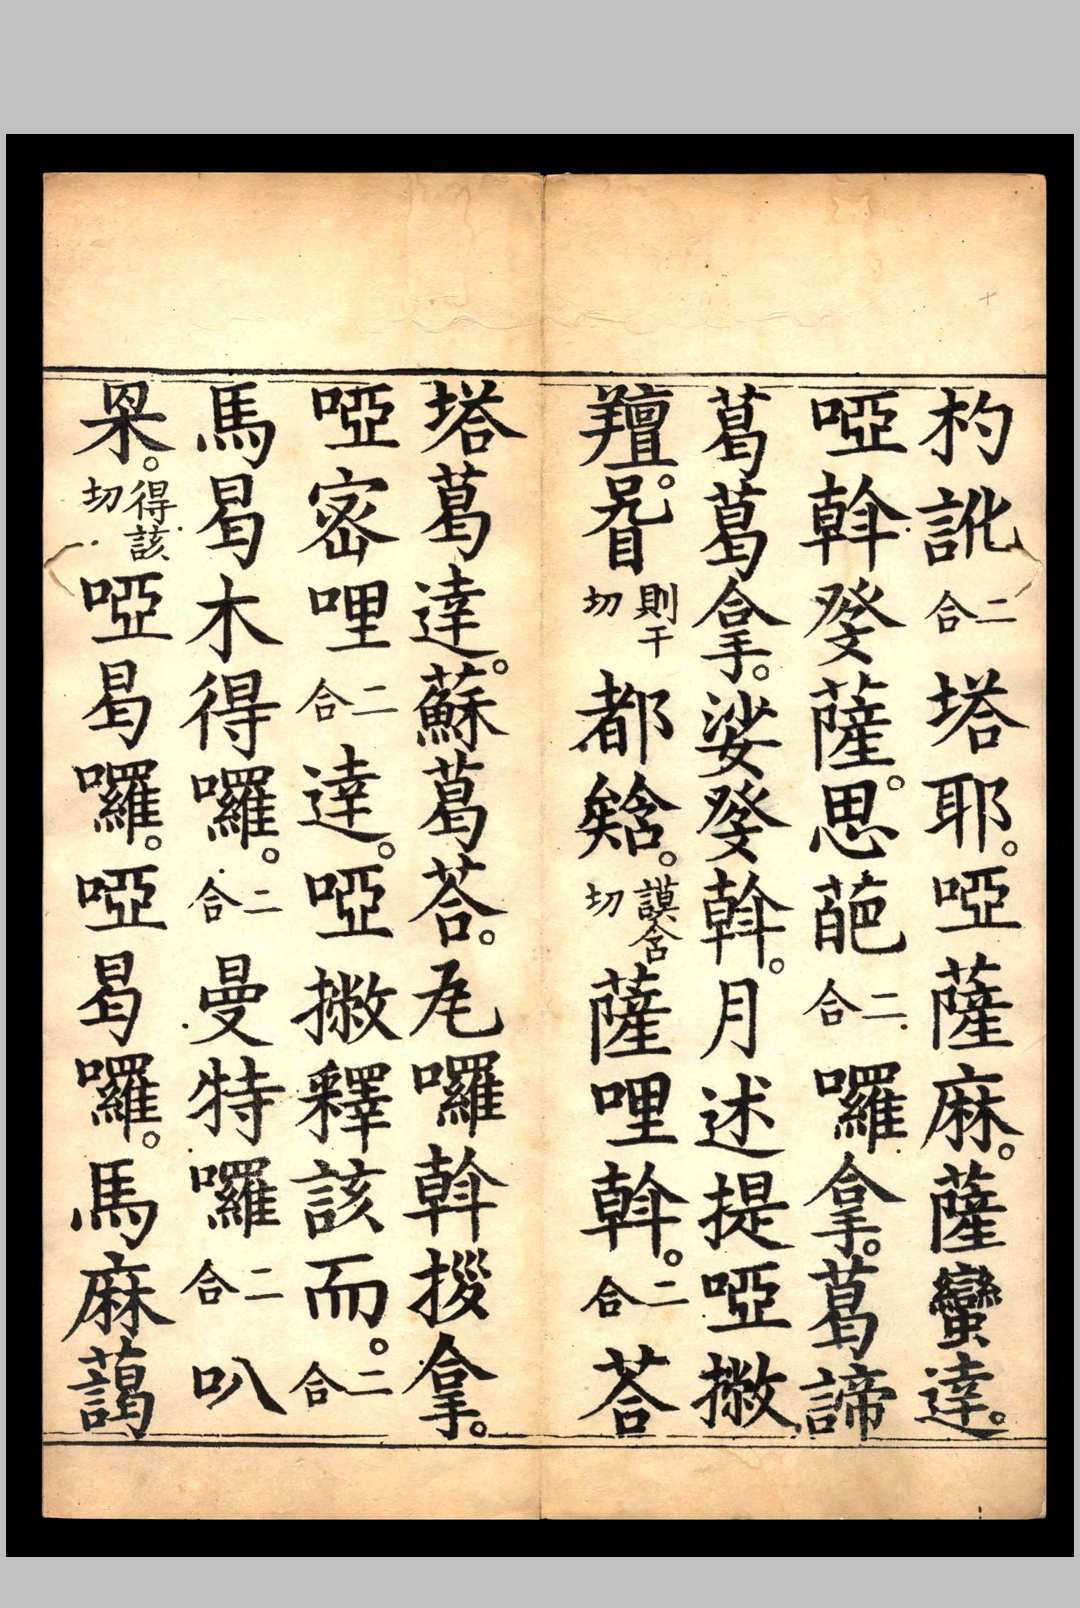 杓訛二合塔耶。啞薩麻。薩蠻達。
啞斡癹薩。思葩二合囉拿。葛諦
葛葛拿。娑癹斡。月述提啞撇
羶。則干切都燄。謨含切薩哩斡。二合荅
塔葛達。蘇葛荅。尾囉斡拶拿。
啞密哩二合達。啞撇釋該而。二合
馬曷木得囉。二合曼特囉二合叭
得該切啞曷囉。啞曷囉。馬麻藹